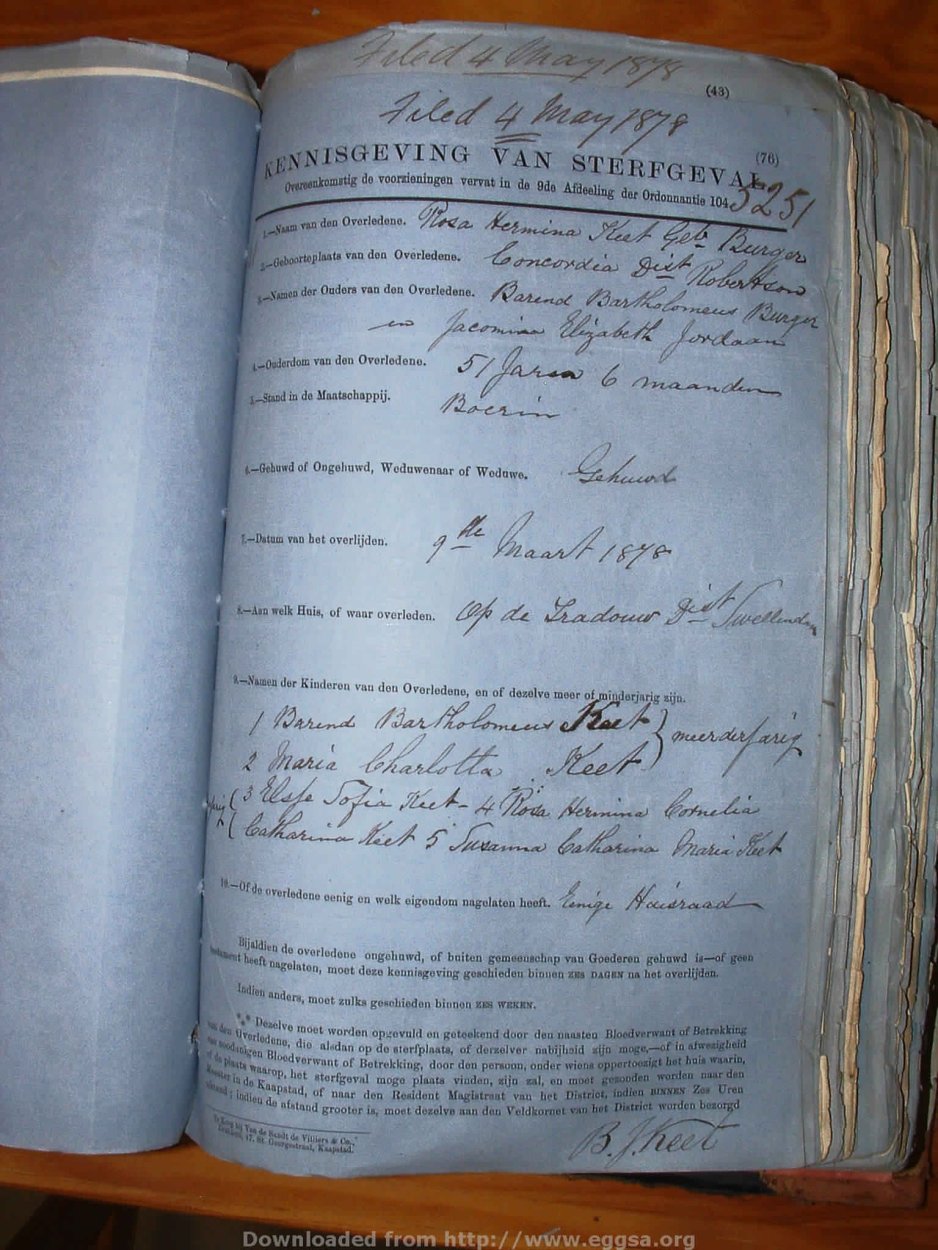 Filed 4 May 1878
(43)
Filed 4 May 1878
(76)
KENNISGEVING VAN STERFGEVAL
Overeenkomstig de voorzieningen vervat in de 9de Afdeeling der Ordonnantie 104
3251
1.—Naam van den Overledene. Rosa Hermina Keet Geb Burger
2.—Geboorteplaats van den Overledene. Concordia Dist Robertson
3.—Namen der Ouders van den Overledene. Barend Bartholomeus Burger
en Jacomina Elizabeth Jordaan
4.—Ouderdom van den Overledene. 51 Jaren 6 maanden
5.—Stand in de Maatschappij. Boerin
6.—Gehuwd of Ongehuwd, Weduwenaar of Weduwe. Gehuwd
7.—Datum van het overlijden. 9de Maart 1878
8.—Aan welk Huis, of waar overleden. Op de Tradouw Dist Swellendam
9.—Namen der Kinderen van den Overledene, en of dezelve meer of minderjarig zijn.
1 Barend Bartholomeus Keet
2 Maria Charlotta Keet } meerderjarig
3 Elsje Sofia Keet - 4 Rosa Hermina Cornelia
Catharina Keet 5 Susanna Catharina Maria Keet
10.—Of de overledene eenig en welk eigendom nagelaten heeft. Eenige Huisraad
Bijaldien de overledene ongehuwd, of buiten gemeenschap van Goederen gehuwd is—of geen
testament heeft nagelaten, moet deze kennisgeving geschieden binnen ZES DAGEN na het overlijden.
Indien anders, moet zulks geschieden binnen ZES WEKEN.
Dezelve moet worden opgevuld en geteekend door den naasten Bloedverwant of Betrekking
van den Overledene, die alsdan op de sterfplaats, of derzelver nabijheid zijn moge,—of in afwezigheid
van zoodanigen Bloedverwant of Betrekking, door den persoon, onder wiens oppertoezigt het huis waarin,
of de plaats waarop, het sterfgeval moge plaats vinden, zijn zal, en moet gezonden worden naar den
Meester in de Kaapstad, of naar den Resident Magistraat van het District, indien BINNEN Zes Uren
afstand; indien de afstand grooter is, moet dezelve aan den Veldkornet van het District worden bezorgd
B. J. Keet
Te Koop bij Van de Sandt de Villiers & Co.,
17, St. Georgestraat, Kaapstad.
Downloaded from http://www.eggsa.org